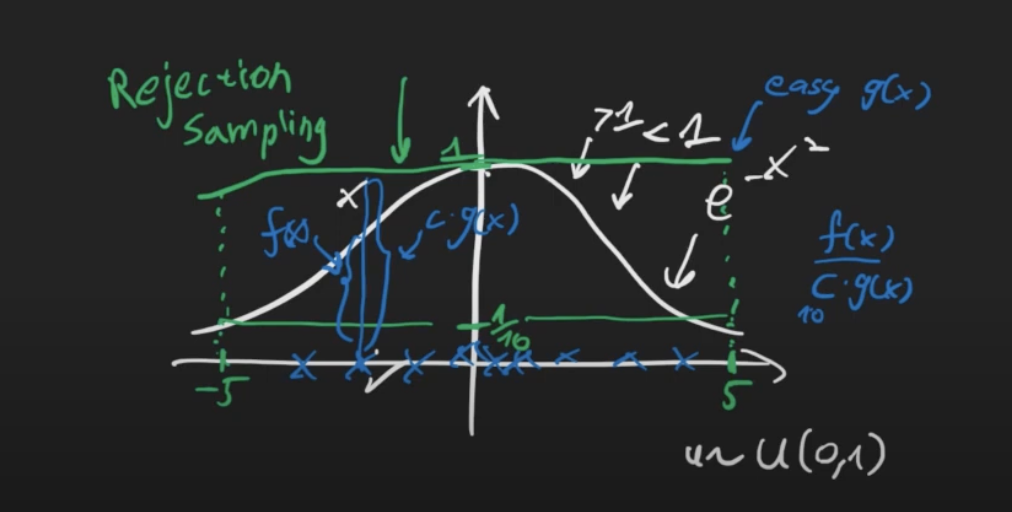 Rejection
Sampling
easy g(x)
>1 < 1
1
e^-x²
x
f(x)
c·g(x)
f(x)
c·g(x)
10
1/10
-5
5
u~U(0,1)